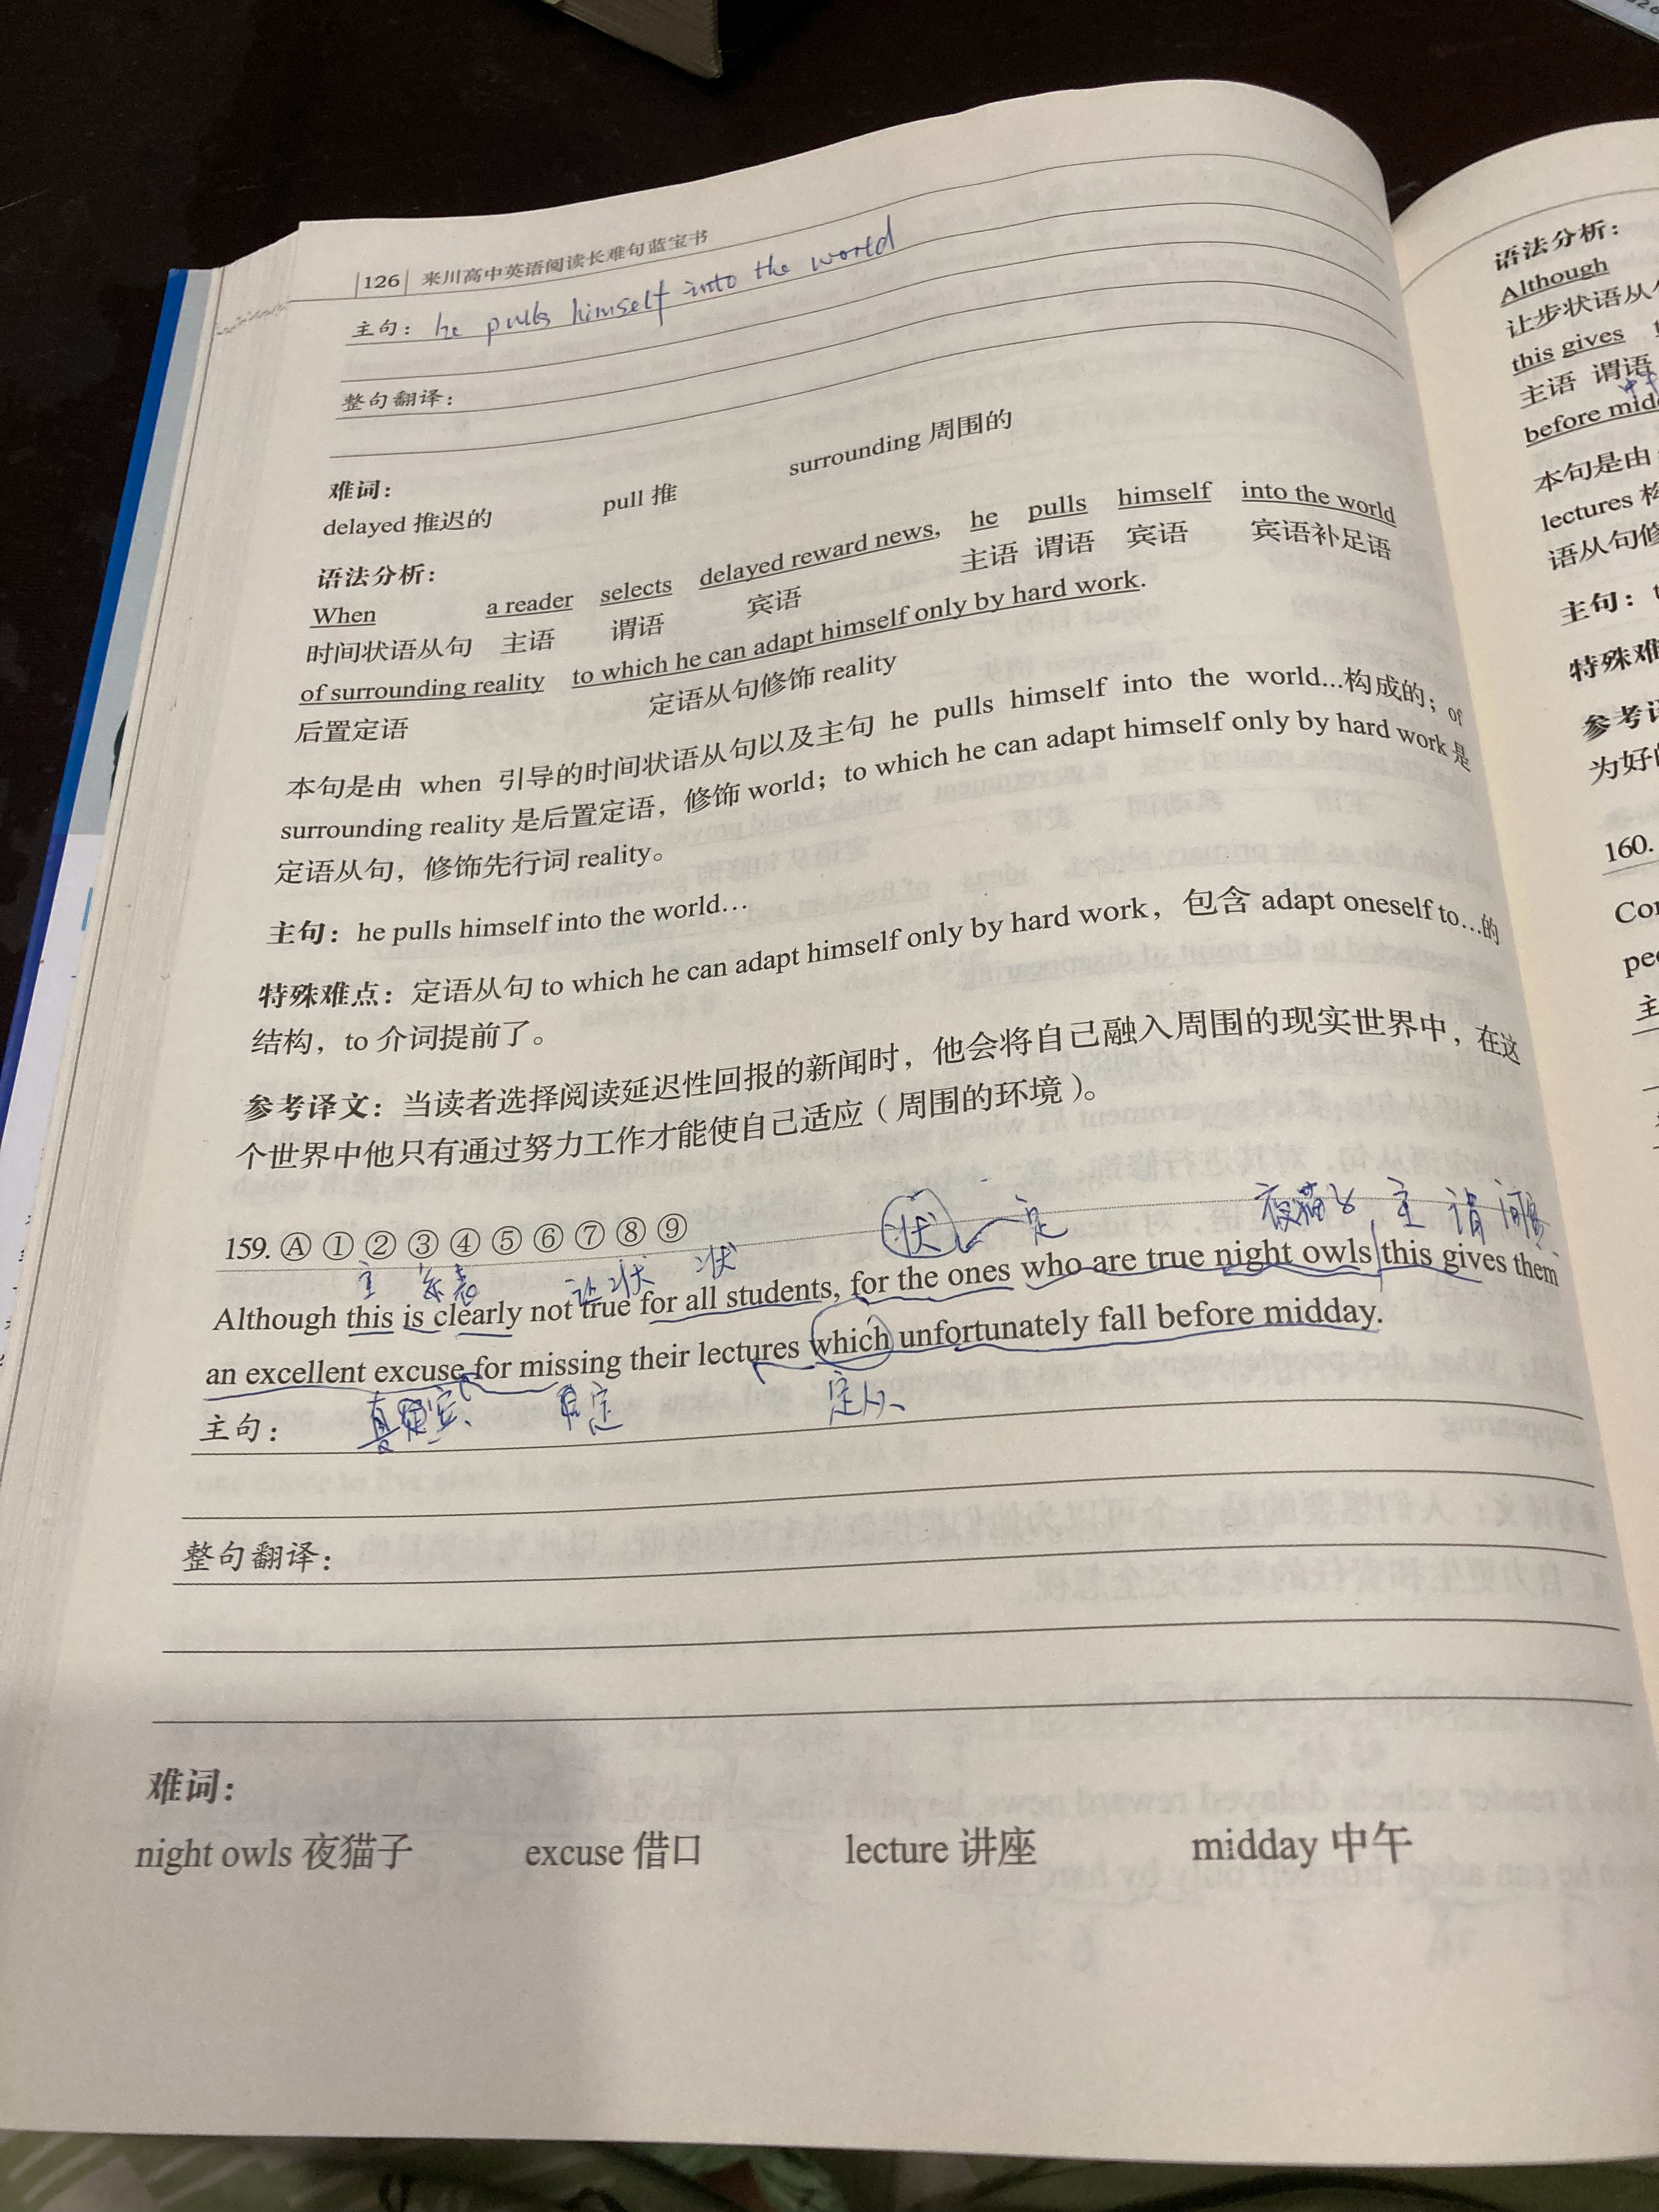 |126| 来川高中英语阅读长难句蓝宝书
主句： he pulls himself into the world
整句翻译：
难词：
delayed 推迟的 pull 推 surrounding 周围的
语法分析：
When a reader selects delayed reward news, he pulls himself into the world
时间状语从句 主语 谓语 宾语 主语 谓语 宾语 宾语补足语
of surrounding reality to which he can adapt himself only by hard work.
后置定语 定语从句修饰 reality
本句是由 when 引导的时间状语从句以及主句 he pulls himself into the world...构成的；of
surrounding reality 是后置定语，修饰 world；to which he can adapt himself only by hard work 是
定语从句，修饰先行词 reality。
主句：he pulls himself into the world…
特殊难点：定语从句 to which he can adapt himself only by hard work，包含 adapt oneself to…的
结构，to 介词提前了。
参考译文：当读者选择阅读延迟性回报的新闻时，他会将自己融入周围的现实世界中，在这
个世界中他只有通过努力工作才能使自己适应（周围的环境）。
159. Ⓐ ① ② ③ ④ ⑤ ⑥ ⑦ ⑧ ⑨
主 系表 让状 状 状 定 夜猫子 主 谓 间宾
Although this is clearly not true for all students, for the ones who are true night owls this gives them
an excellent excuse for missing their lectures which unfortunately fall before midday.
直宾 后定 定从
主句：
整句翻译：
难词：
night owls 夜猫子 excuse 借口 lecture 讲座 midday 中午
语法分析：
Although
让步状语从
this gives
主语 谓语
before mid
本句是由
lectures
语从句修
主句：
特殊难
参考译
为好的
160.